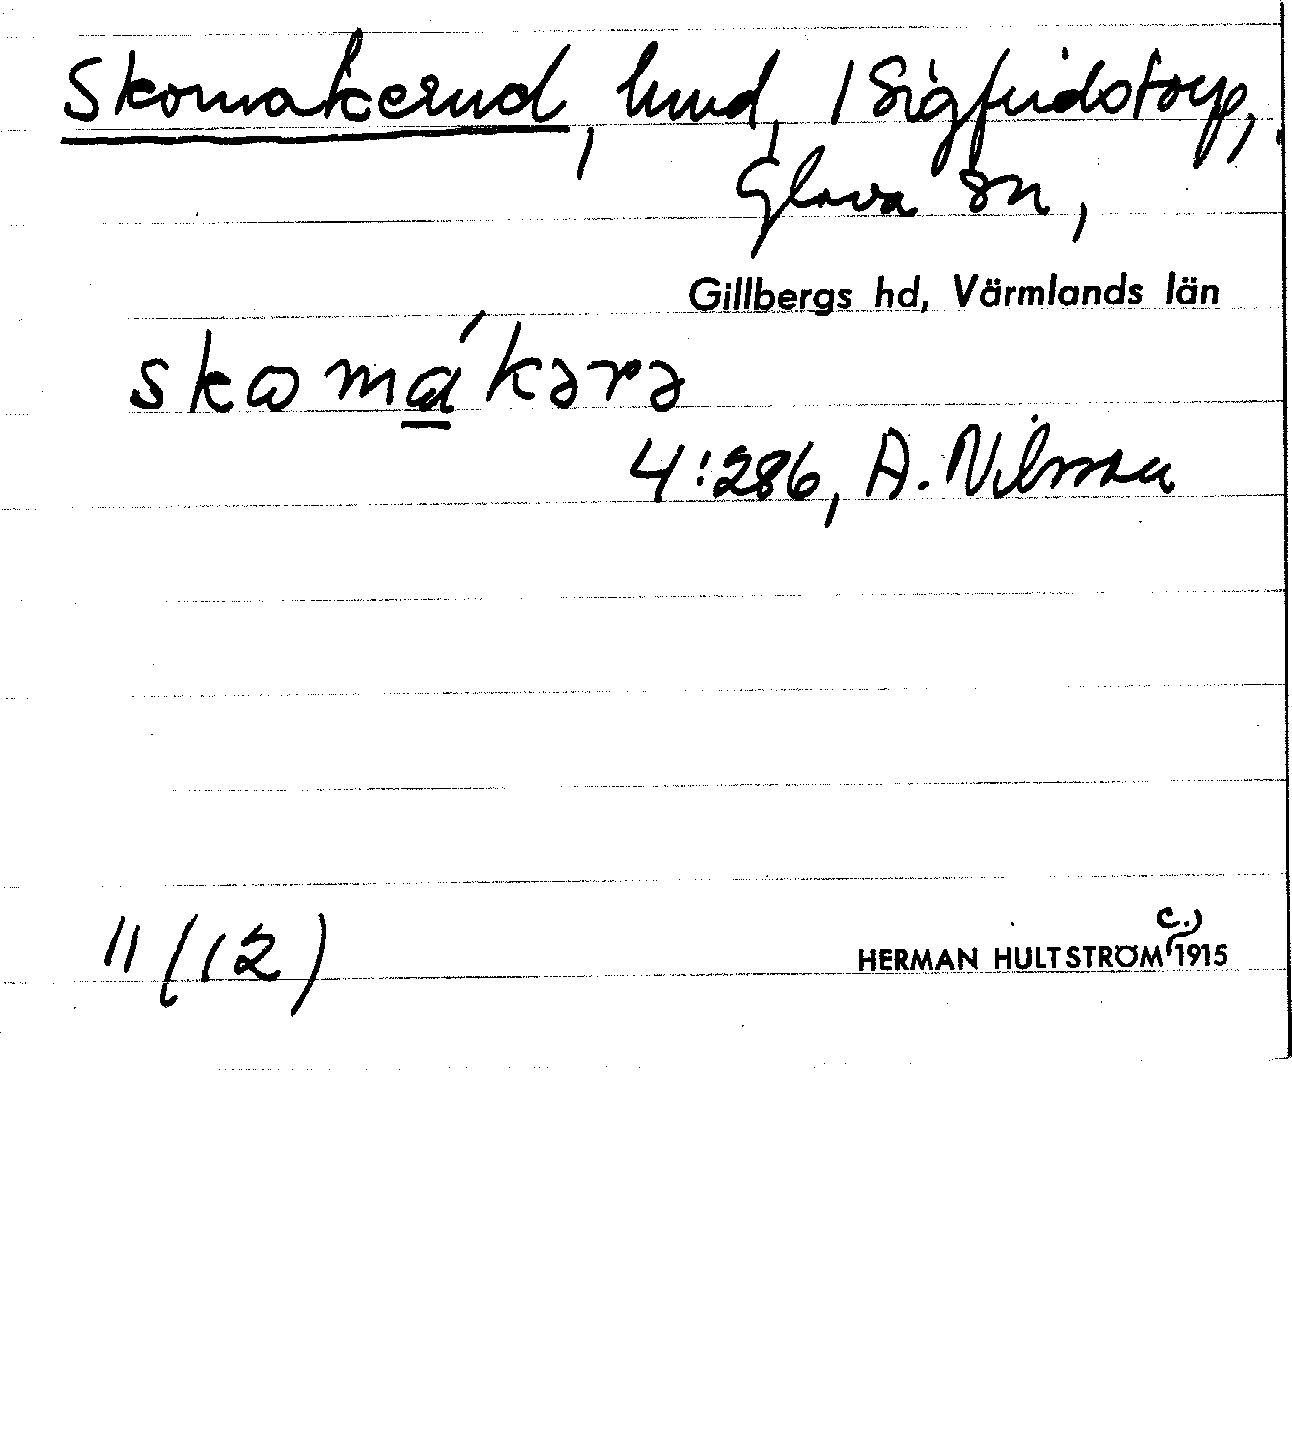 Skomakerud, hmd, / Sigfridstorp,
Glava sn,
Gillbergs hd, Värmlands län
skomákərə
4:286, A. Nilsson
11 (12)
HERMAN HULTSTRÖM (c.) 1915